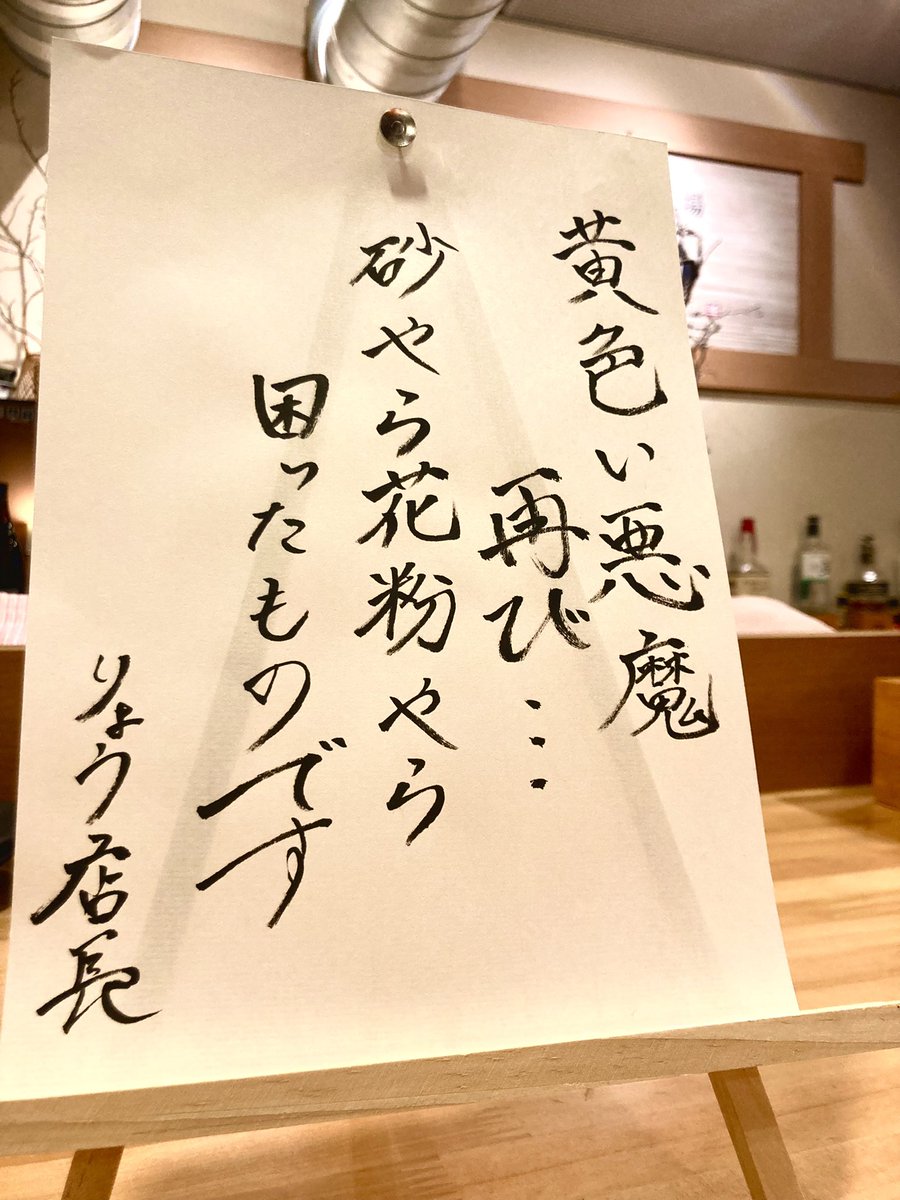 黄色い悪魔
再び…
砂やら花粉やら
困ったものです
りょう店長